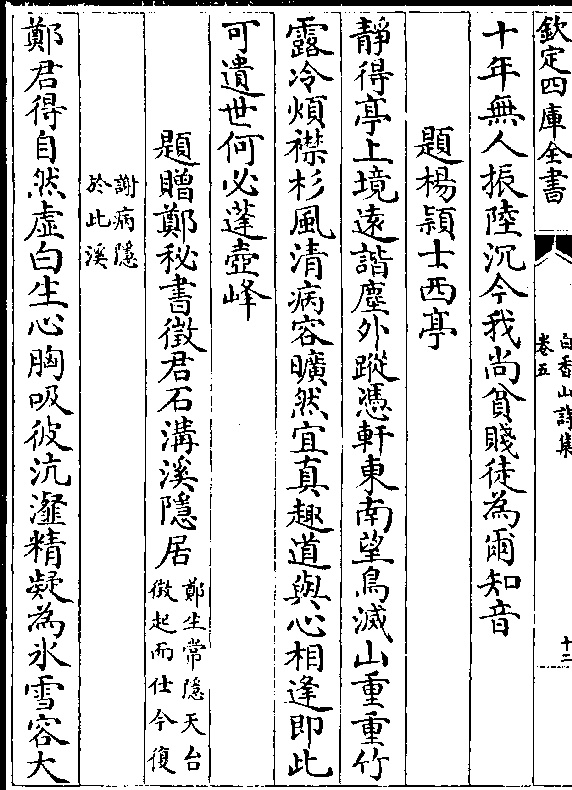 欽定四庫全書
白香山詩集
卷五
十二
十年無人振陸沉今我尚貧賤徒為爾知音
題楊頴士西亭
靜得亭上境遠諧塵外蹤憑軒東南望鳥滅山重重竹
露冷煩襟杉風清病容曠然宜真趣道與心相逢即此
可遺世何必蓬壺峰
題贈鄭秘書徵君石溝溪隱居
鄭生常隱天台
徵起而仕今復
謝病隱
於此溪
鄭君得自然虛白生心胸吸彼沆瀣精凝為氷雪容大